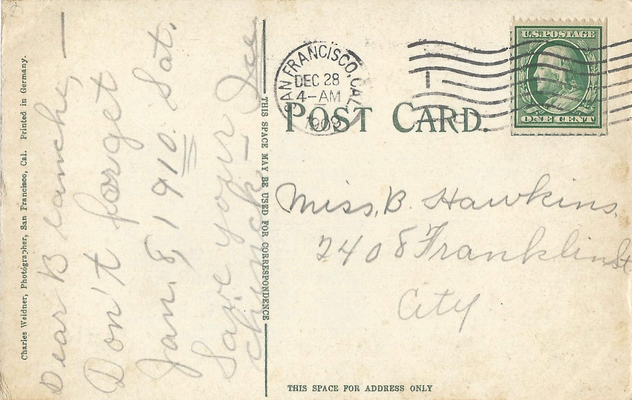 Charles Weidner, Photographer, San Francisco, Cal. Printed in Germany.
Dear Blanche, —
Don't forget
Jan. 8, 1910. Sat.
Save your
check —
THIS SPACE MAY BE USED FOR CORRESPONDENCE
SAN FRANCISCO, CAL.
DEC 28
4-AM
1909
U.S. POSTAGE
ONE CENT
POST CARD.
Miss, B. Hawkins,
2408 Franklin St
City
THIS SPACE FOR ADDRESS ONLY